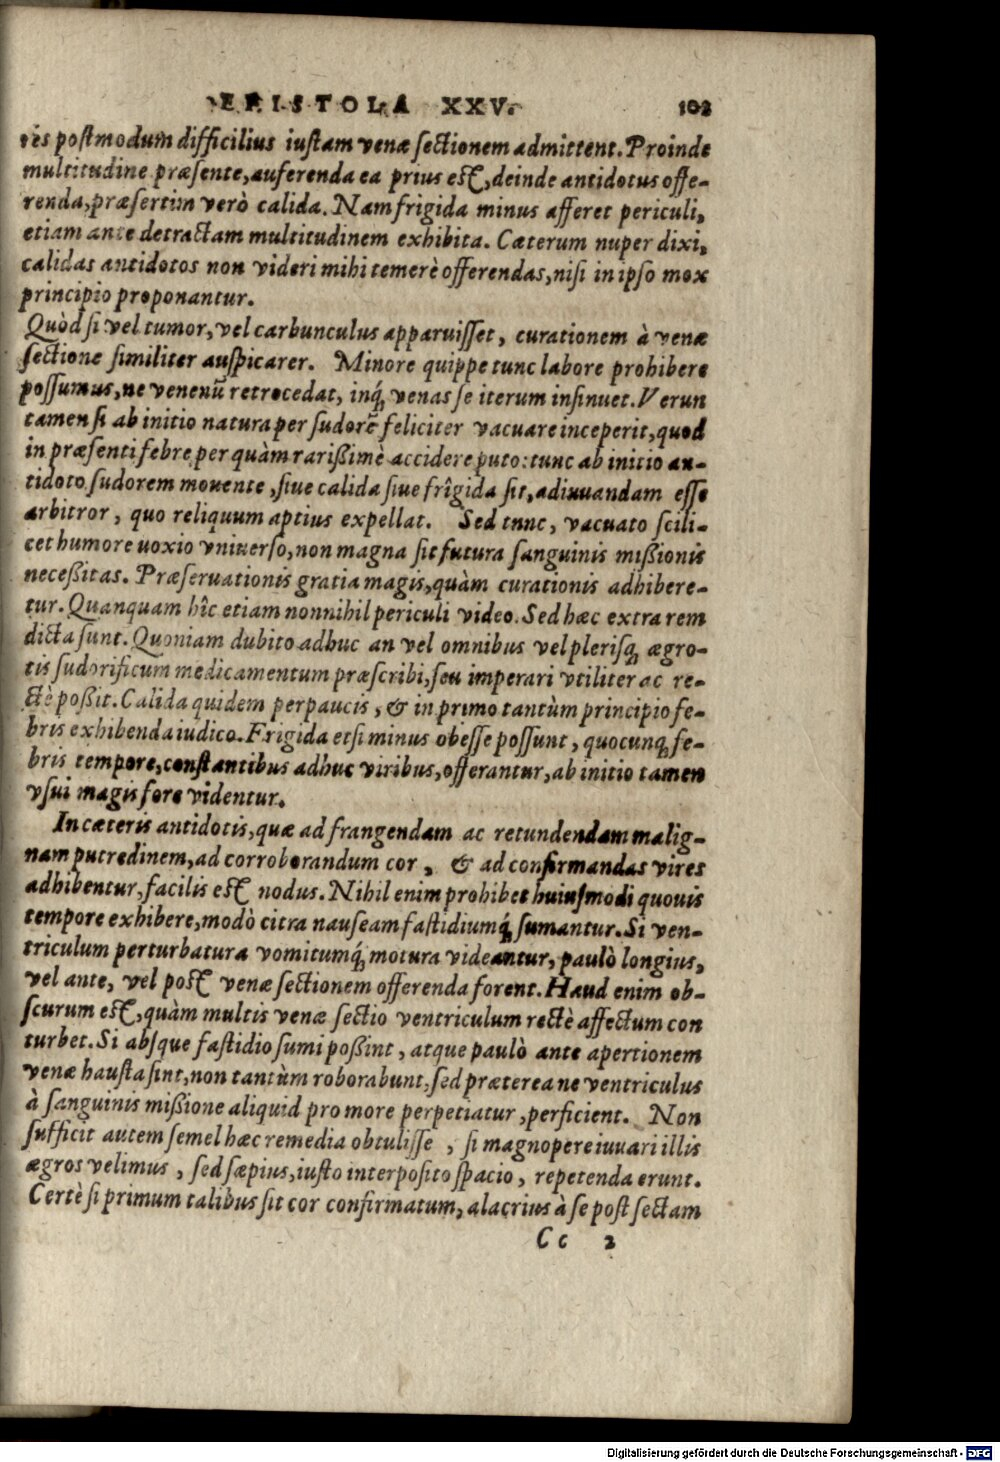 EPISTOLA XXV. 102
res postmodum difficilius iustam venæ sectionem admittent. Proinde
multitudine præsente, auferenda ea prius est, deinde antidotus offe-
renda, præsertim verò calida. Nam frigida minus afferet periculi,
etiam ante detractam multitudinem exhibita. Cæterum nuper dixi,
calidas antidotos non videri mihi temerè offerendas, nisi in ipso mox
principio proponantur.
Quòd si vel tumor, vel carbunculus apparuisset, curationem à venæ
sectione similiter auspicarer. Minore quippe tunc labore prohibere
possumus, ne venenũ retrocedat, inq́; venas se iterum insinuet. Verun
tamen si ab initio natura per sudorẽ feliciter vacuare inceperit, quod
in præsenti febre per quàm rarißimè accidere puto: tunc ab initio an-
tidoto sudorem mouente, siue calida siue frîgida sit, adiuuandam esse
arbitror, quo reliquum aptius expellat. Sed tnnc, vacuato scili-
cet humore uoxio vniuerso, non magna sit futura sanguinis mißionis
neceßitas. Præseruationis gratia magis, quàm curationis adhibere-
tur. Quanquam hîc etiam nonnihil periculi video. Sed hæc extra rem
dicta sunt. Quoniam dubito adhuc an vel omnibus vel plerisq; ægro-
tis sudorificum medicamentum præscribi, seu imperari vtiliter ac re-
ctè poßit. Calida quidem perpaucis, & in primo tantùm principio fe-
bris exhibenda iudico. Frigida etsi minus obesse possunt, quocunq; fe-
bris tempore, constantibus adhuc viribus, offerantur, ab initio tamen
vsui magis fore videntur.
In cæteris antidotis, quæ ad frangendam ac retundendam malig-
nam putredinem, ad corroborandum cor, & ad confirmandas vires
adhibentur, facilis est nodus. Nihil enim prohibet huiusmodi quouis
tempore exhibere, modò citra nauseam fastidiumq́; sumantur. Si ven-
triculum perturbatura vomitumq́; motura videantur, paulò longius,
vel ante, vel post venæ sectionem offerenda forent. Haud enim ob-
scurum est, quàm multis venæ sectio ventriculum rectè affectum con
turbet. Si absque fastidio sumi poßint, atque paulò ante apertionem
venæ hausta sint, non tantùm roborabunt, sed præterea ne ventriculus
à sanguinis mißione aliquid pro more perpetiatur, perficient. Non
sufficit autem semel hæc remedia obtulisse, si magnopere iuuari illis
ægros velimus, sed sæpius, iusto interposito spacio, repetenda erunt.
Certè si primum talibus sit cor confirmatum, alacrius à se post sectam
Cc 2
Digitalisierung gefördert durch die Deutsche Forschungsgemeinschaft - DFG